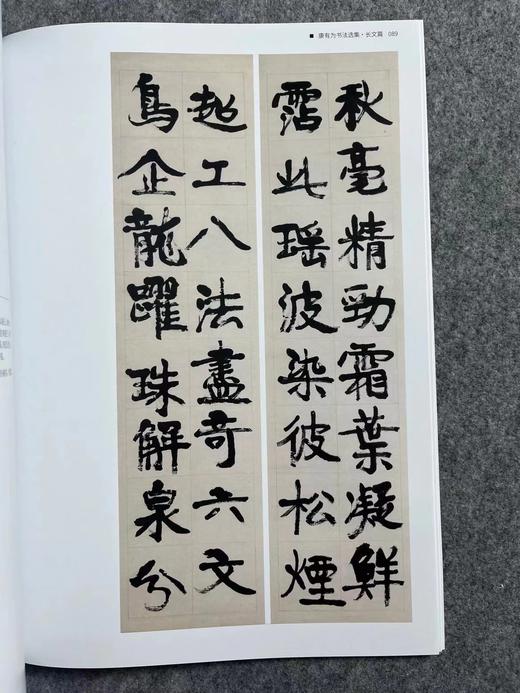 康有为书法选集·长文篇 089
秋毫精勁霜葉凝鮮
霑此瑶波染彼松煙
超工八法盡奇六文
鳥企龍躍珠解泉分